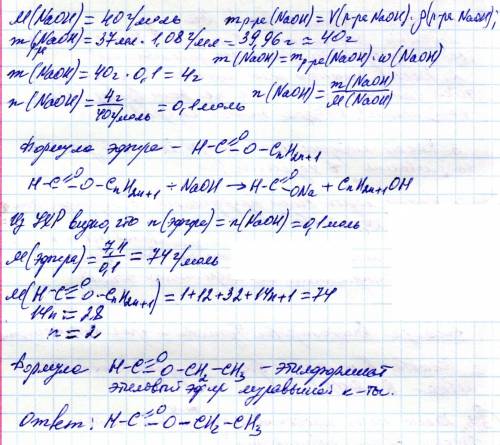 M(NaOH) = 40 г/моль    m р-ра (NaOH) = V(р-ра NaOH) · ρ(р-ра NaOH);
m р-ра (NaOH) = 37мл · 1,08 г/мл = 39,96 г ≈ 40 г
m(NaOH) = m р-ра (NaOH) · ω(NaOH)
m(NaOH) = 40г · 0,1 = 4г
n(NaOH) = 4г / 40г/моль = 0,1 моль    n(NaOH) = m(NaOH) / M(NaOH)
Формула эфира – H-C=O-O-CnH2n+1
H-C=O-O-CnH2n+1 + NaOH → H-C=O ONa + CnH2n+1OH
Из УХР видно, что n(эфира) = n(NaOH) = 0,1 моль
M(эфира) = 7,4 / 0,1 = 74 г/моль
M(H-C=O-O-CnH2n+1) = 1+12+32+14n+1 = 74
14n = 28
n = 2
Формула H-C=O-O-CH2-CH3 – этилформиат
этиловый эфир муравьиной к-ты.
Ответ: H-C=O-O-CH2-CH3